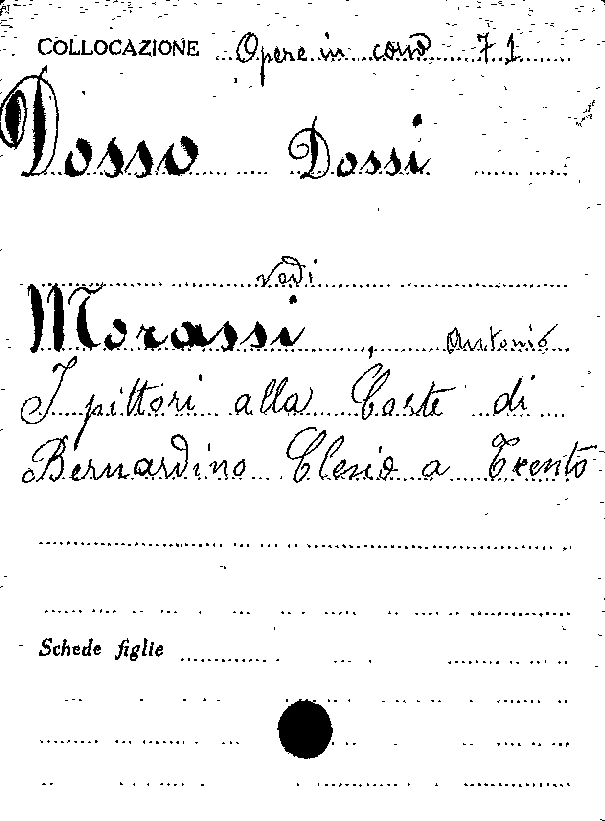 COLLOCAZIONE Opere in cons 71
Dosso Dossi
vedi
Morassi, Antonio
I pittori alla Corte di
Bernardino Clesio a Trento
Schede figlie